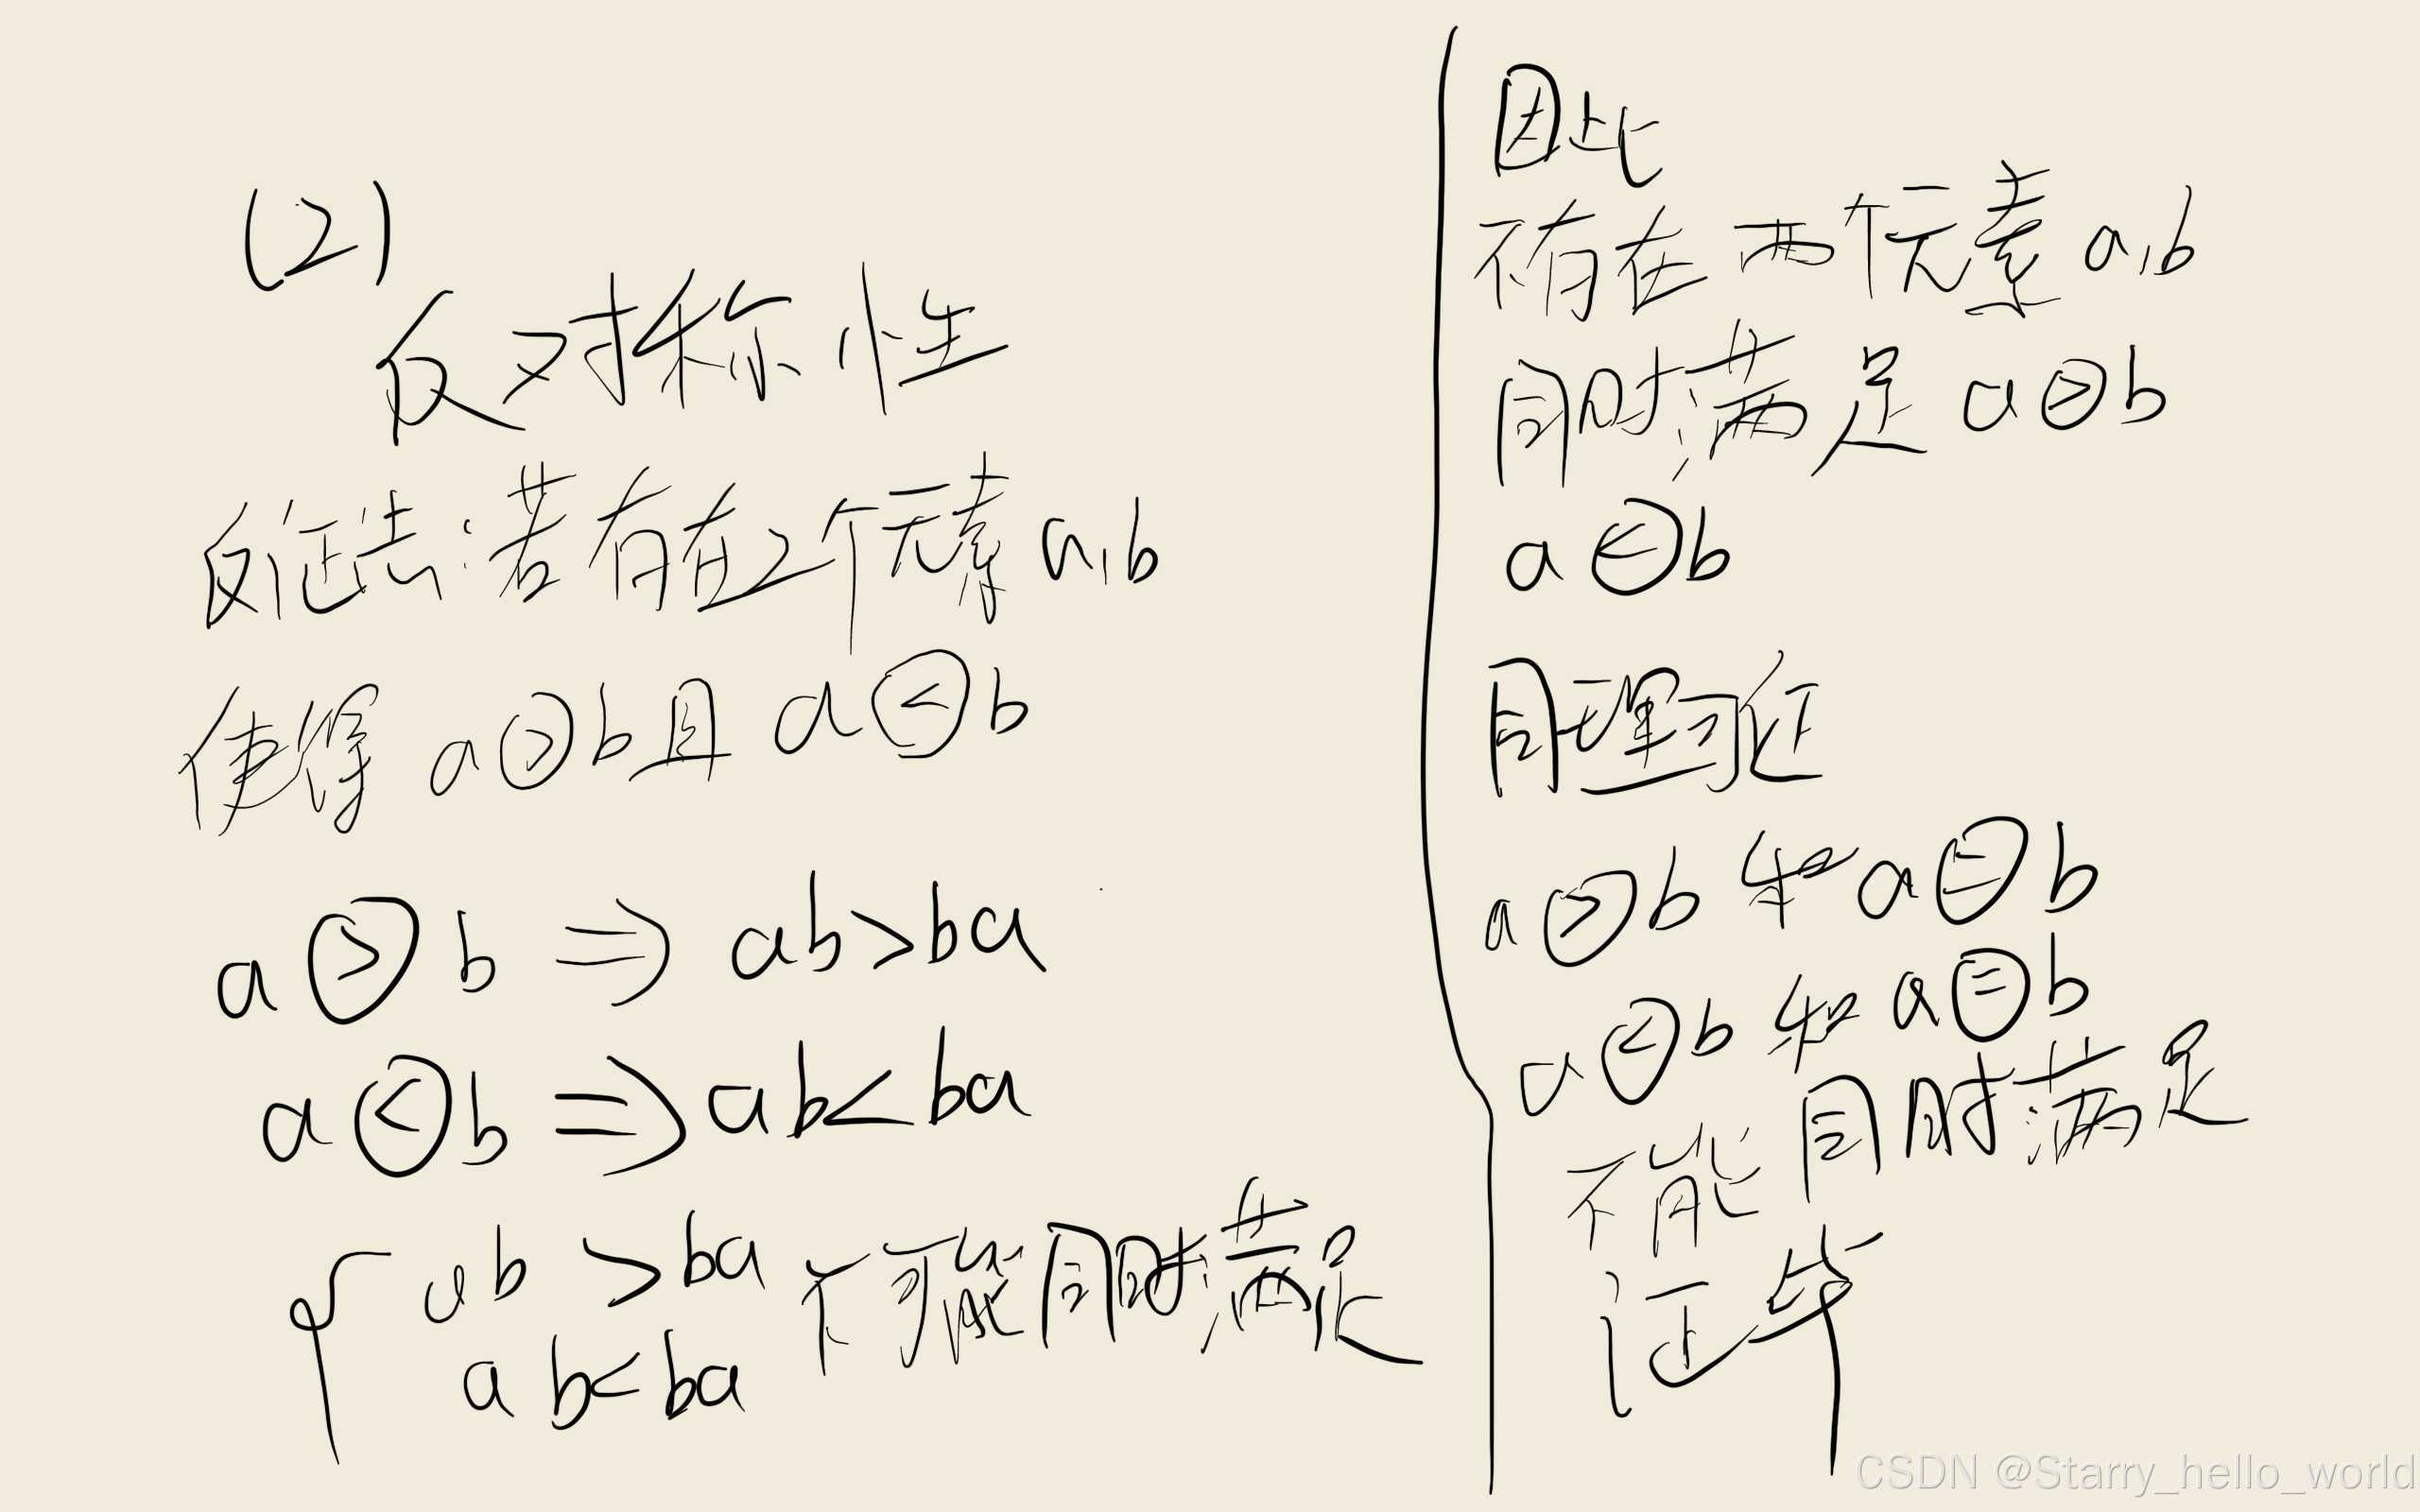 (2)
反对称性
反证法:若存在2个元素a,b
使得 a⊙>b且 a⊙<b
a ⊙> b ⇒ ab>ba
a ⊙< b ⇒ ab<ba
{ ab >ba 不可能同时满足
ab<ba
因此
不存在两个元素a,b
同时满足a⊙>b
a⊙<b
同理可证
a⊙>b和a⊙=b
a⊙<b和a⊙=b
不能同时满足
证毕
CSDN @Starry_hello_world